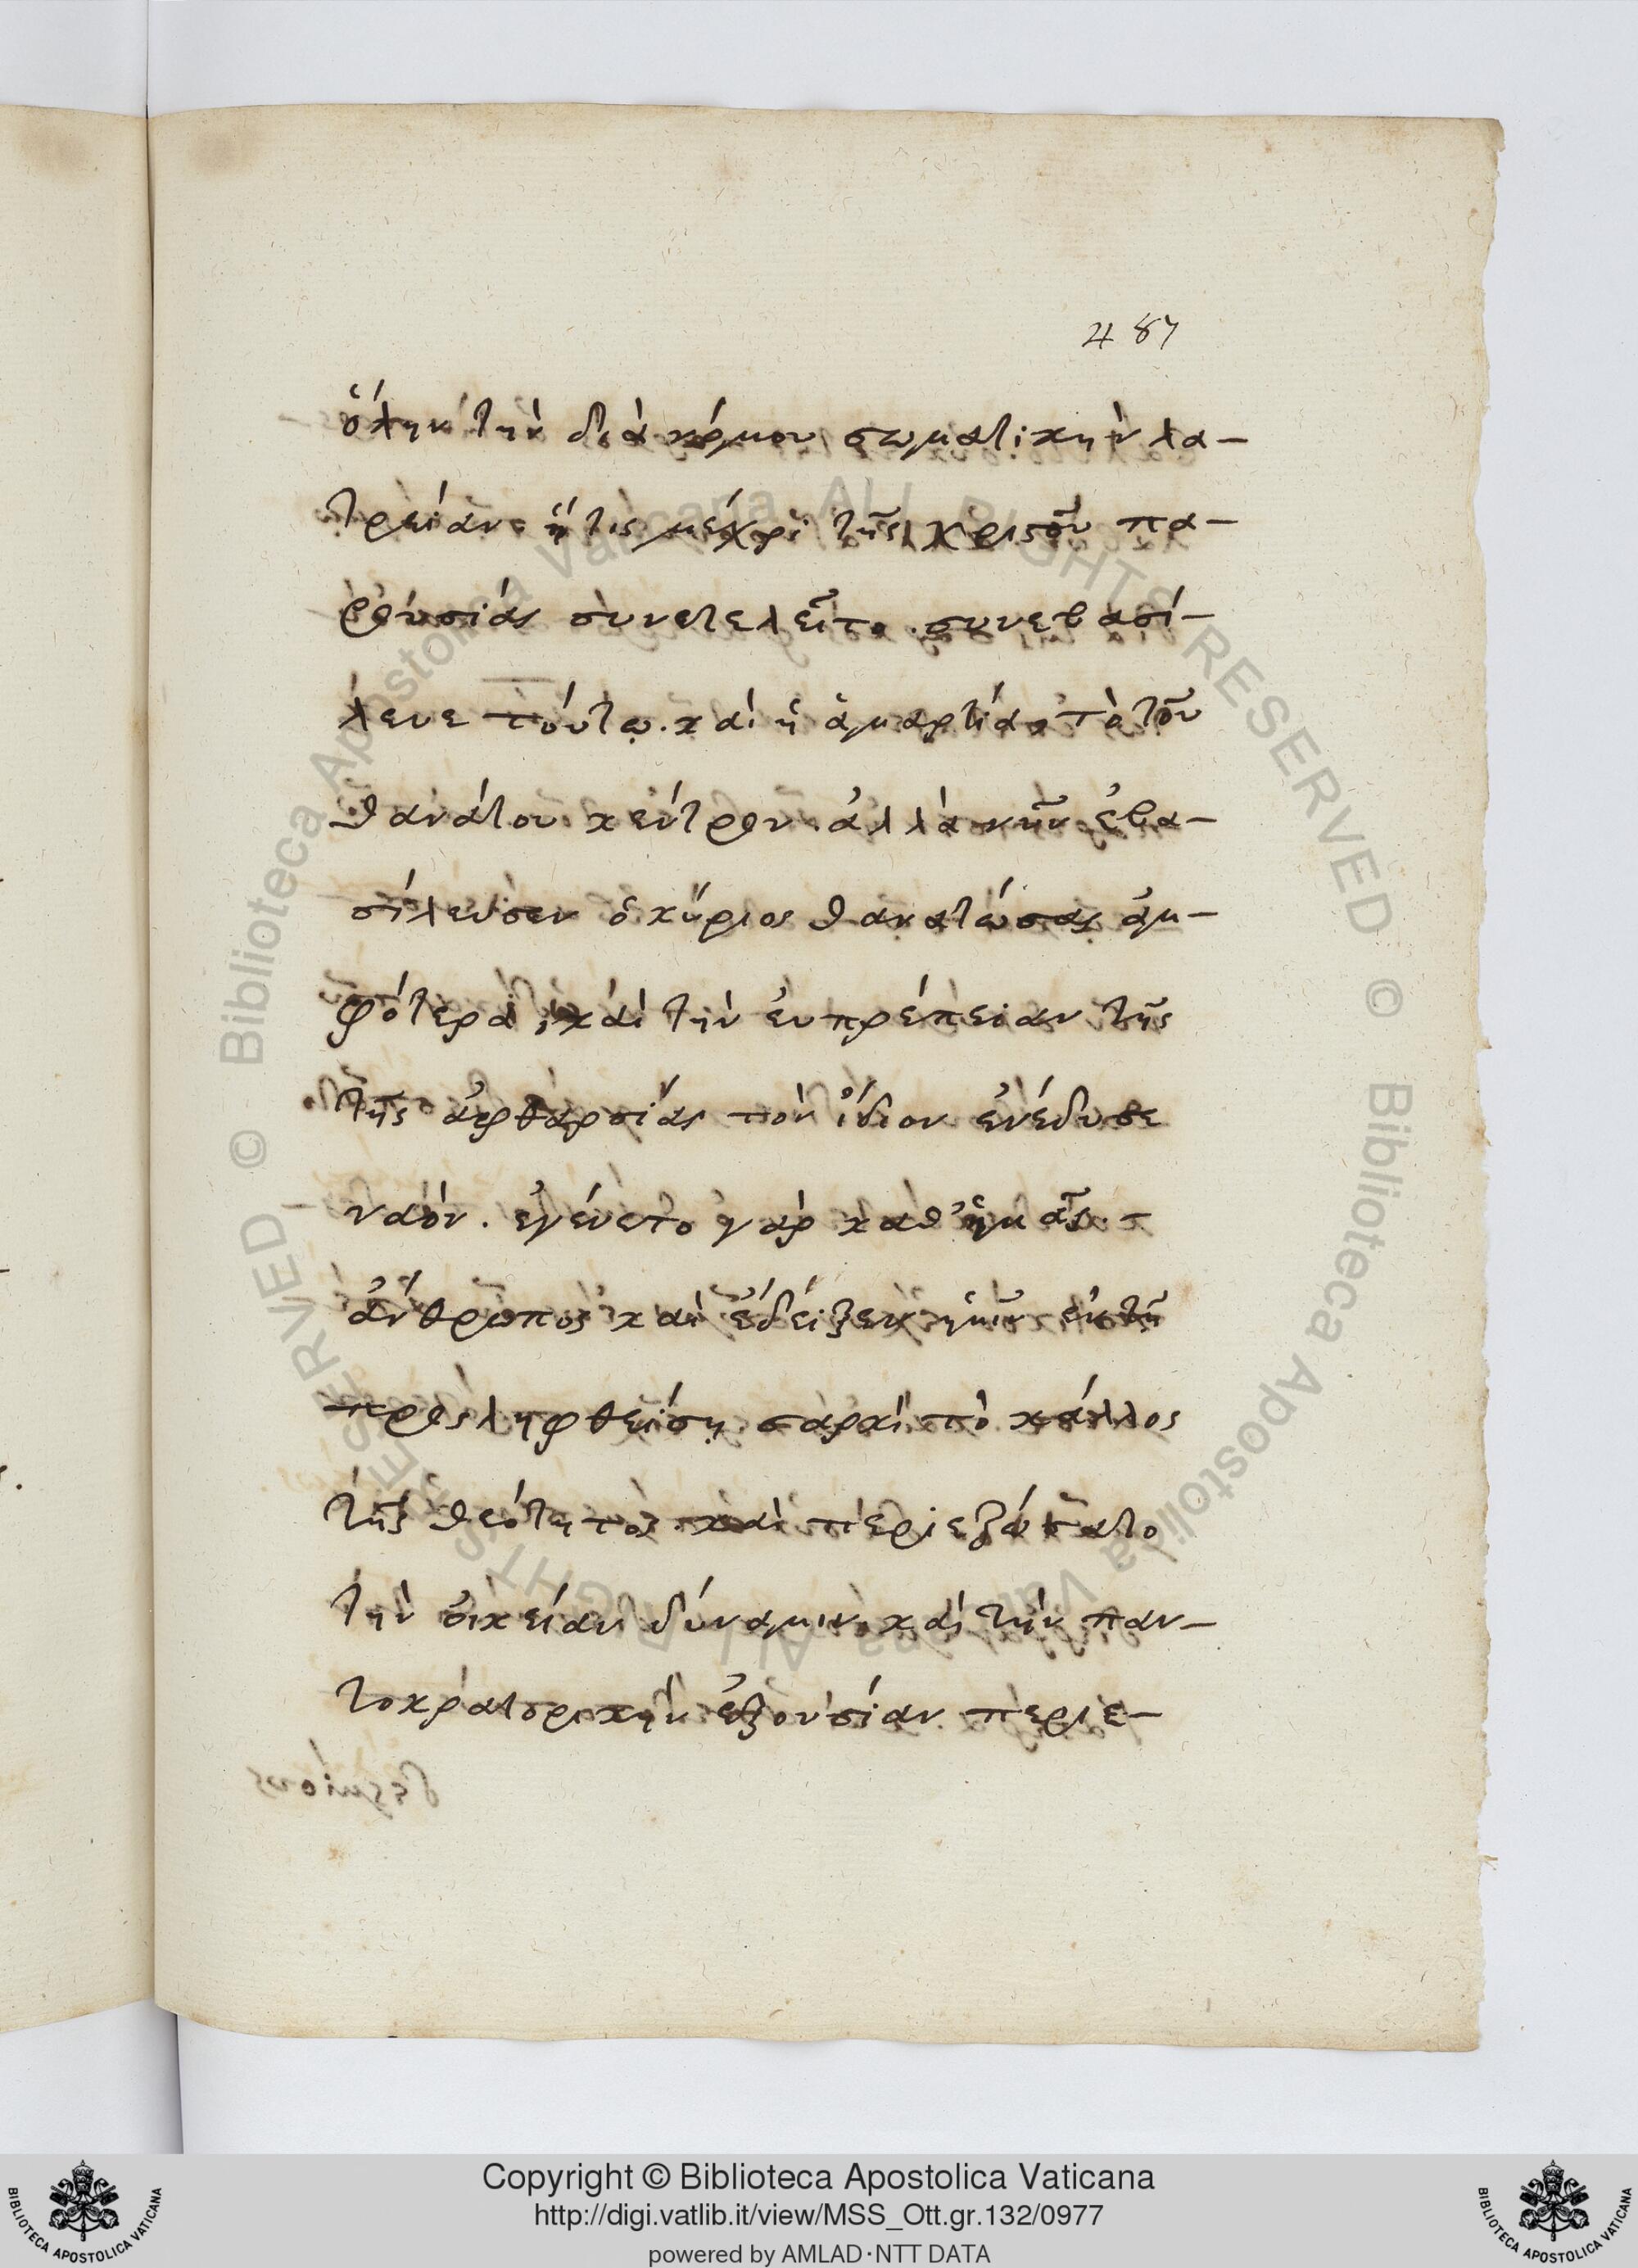 487
ὅλην τὴν διὰ νόμου σωματικὴν λα-
τρείαν. ἥτις μέχρι τῆς χριστοῦ πα-
ρουσίας συνετελεῖτο. συνεβασί-
λευε τούτῳ. καὶ ἡ ἁμαρτία, τὸ τοῦ
θανάτου κέντρον. ἀλλὰ νῦν ἐβα-
σίλευσεν ὁ κύριος θανατώσας ἀμ-
φότερα, καὶ τὴν εὐπρέπειαν τῆς
τῆς ἀφθαρσίας τὸν ἴδιον ἐνέδυσε
ναόν. ἐγένετο γὰρ καθ' ἡμᾶς -
ἄνθρωπος καὶ ἔδειξεν ἡμῖν ἐν τῇ
προσληφθείσῃ σαρκὶ τὸ κάλλος
τῆς θεότητος. καὶ περιεζώσατο
τὴν οἰκείαν δύναμιν. καὶ τὴν παν-
τοκρατορικὴν ἐξουσίαν. περιε-
Copyright © Biblioteca Apostolica Vaticana
http://digi.vatlib.it/view/MSS_Ott.gr.132/0977
powered by AMLAD·NTT DATA
BIBLIOTECA APOSTOLICA VATICANA
BIBLIOTECA APOSTOLICA VATICANA
© Biblioteca Apostolica Vaticana ALL RIGHTS RESERVED © Biblioteca Apostolica Vaticana ALL RIGHTS RESERVED